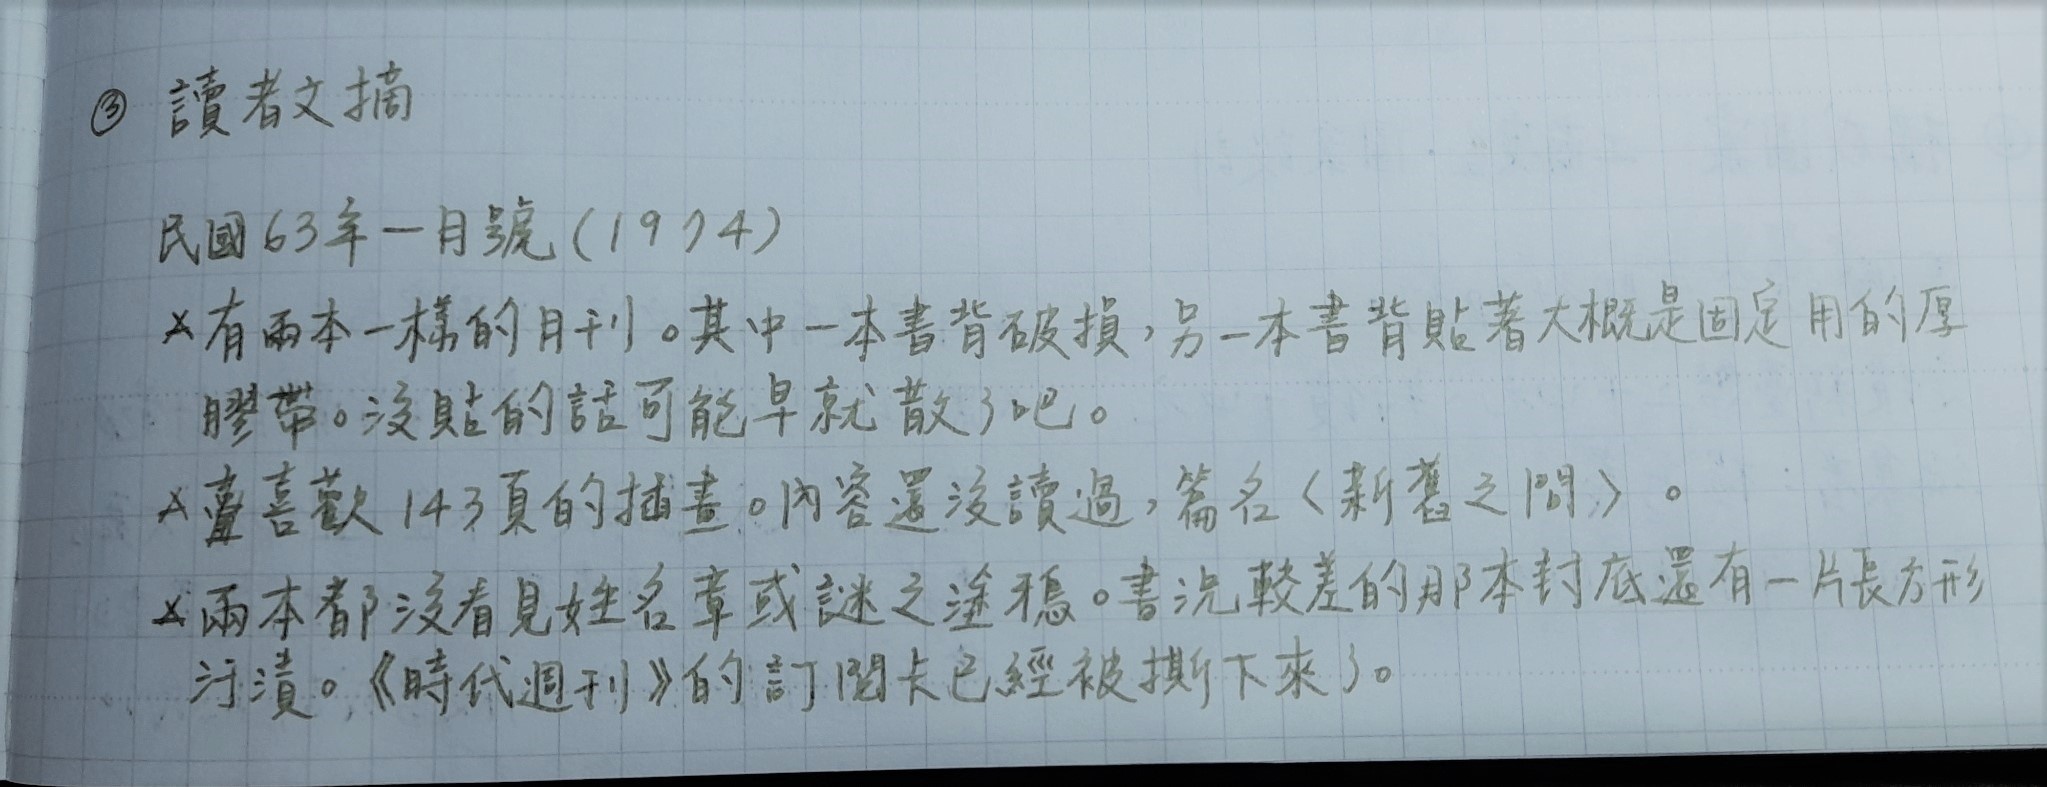 ③ 讀者文摘
民國63年一月號(1974)
×有兩本一樣的月刊。其中一本書背破損,另一本書背貼著大概是固定用的厚
膠帶。沒貼的話可能早就散了吧。
×蠻喜歡143頁的插畫。內容還沒讀過,篇名〈新舊之間〉。
×兩本都沒看見姓名章或謎之塗鴉。書況較差的那本封底還有一片長方形
汙漬。《時代週刊》的訂閱卡已經被撕下來了。